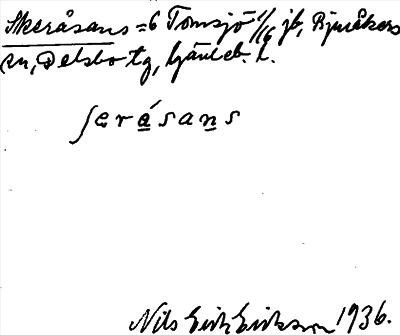 Skeråsans = 6 Tomsjö 1/16 jb, Bjuråkers
sn, Delsbo tg, Gävleb. l.
ʃɛrása̲n̲s
Nils Erik Eriksson 1936.